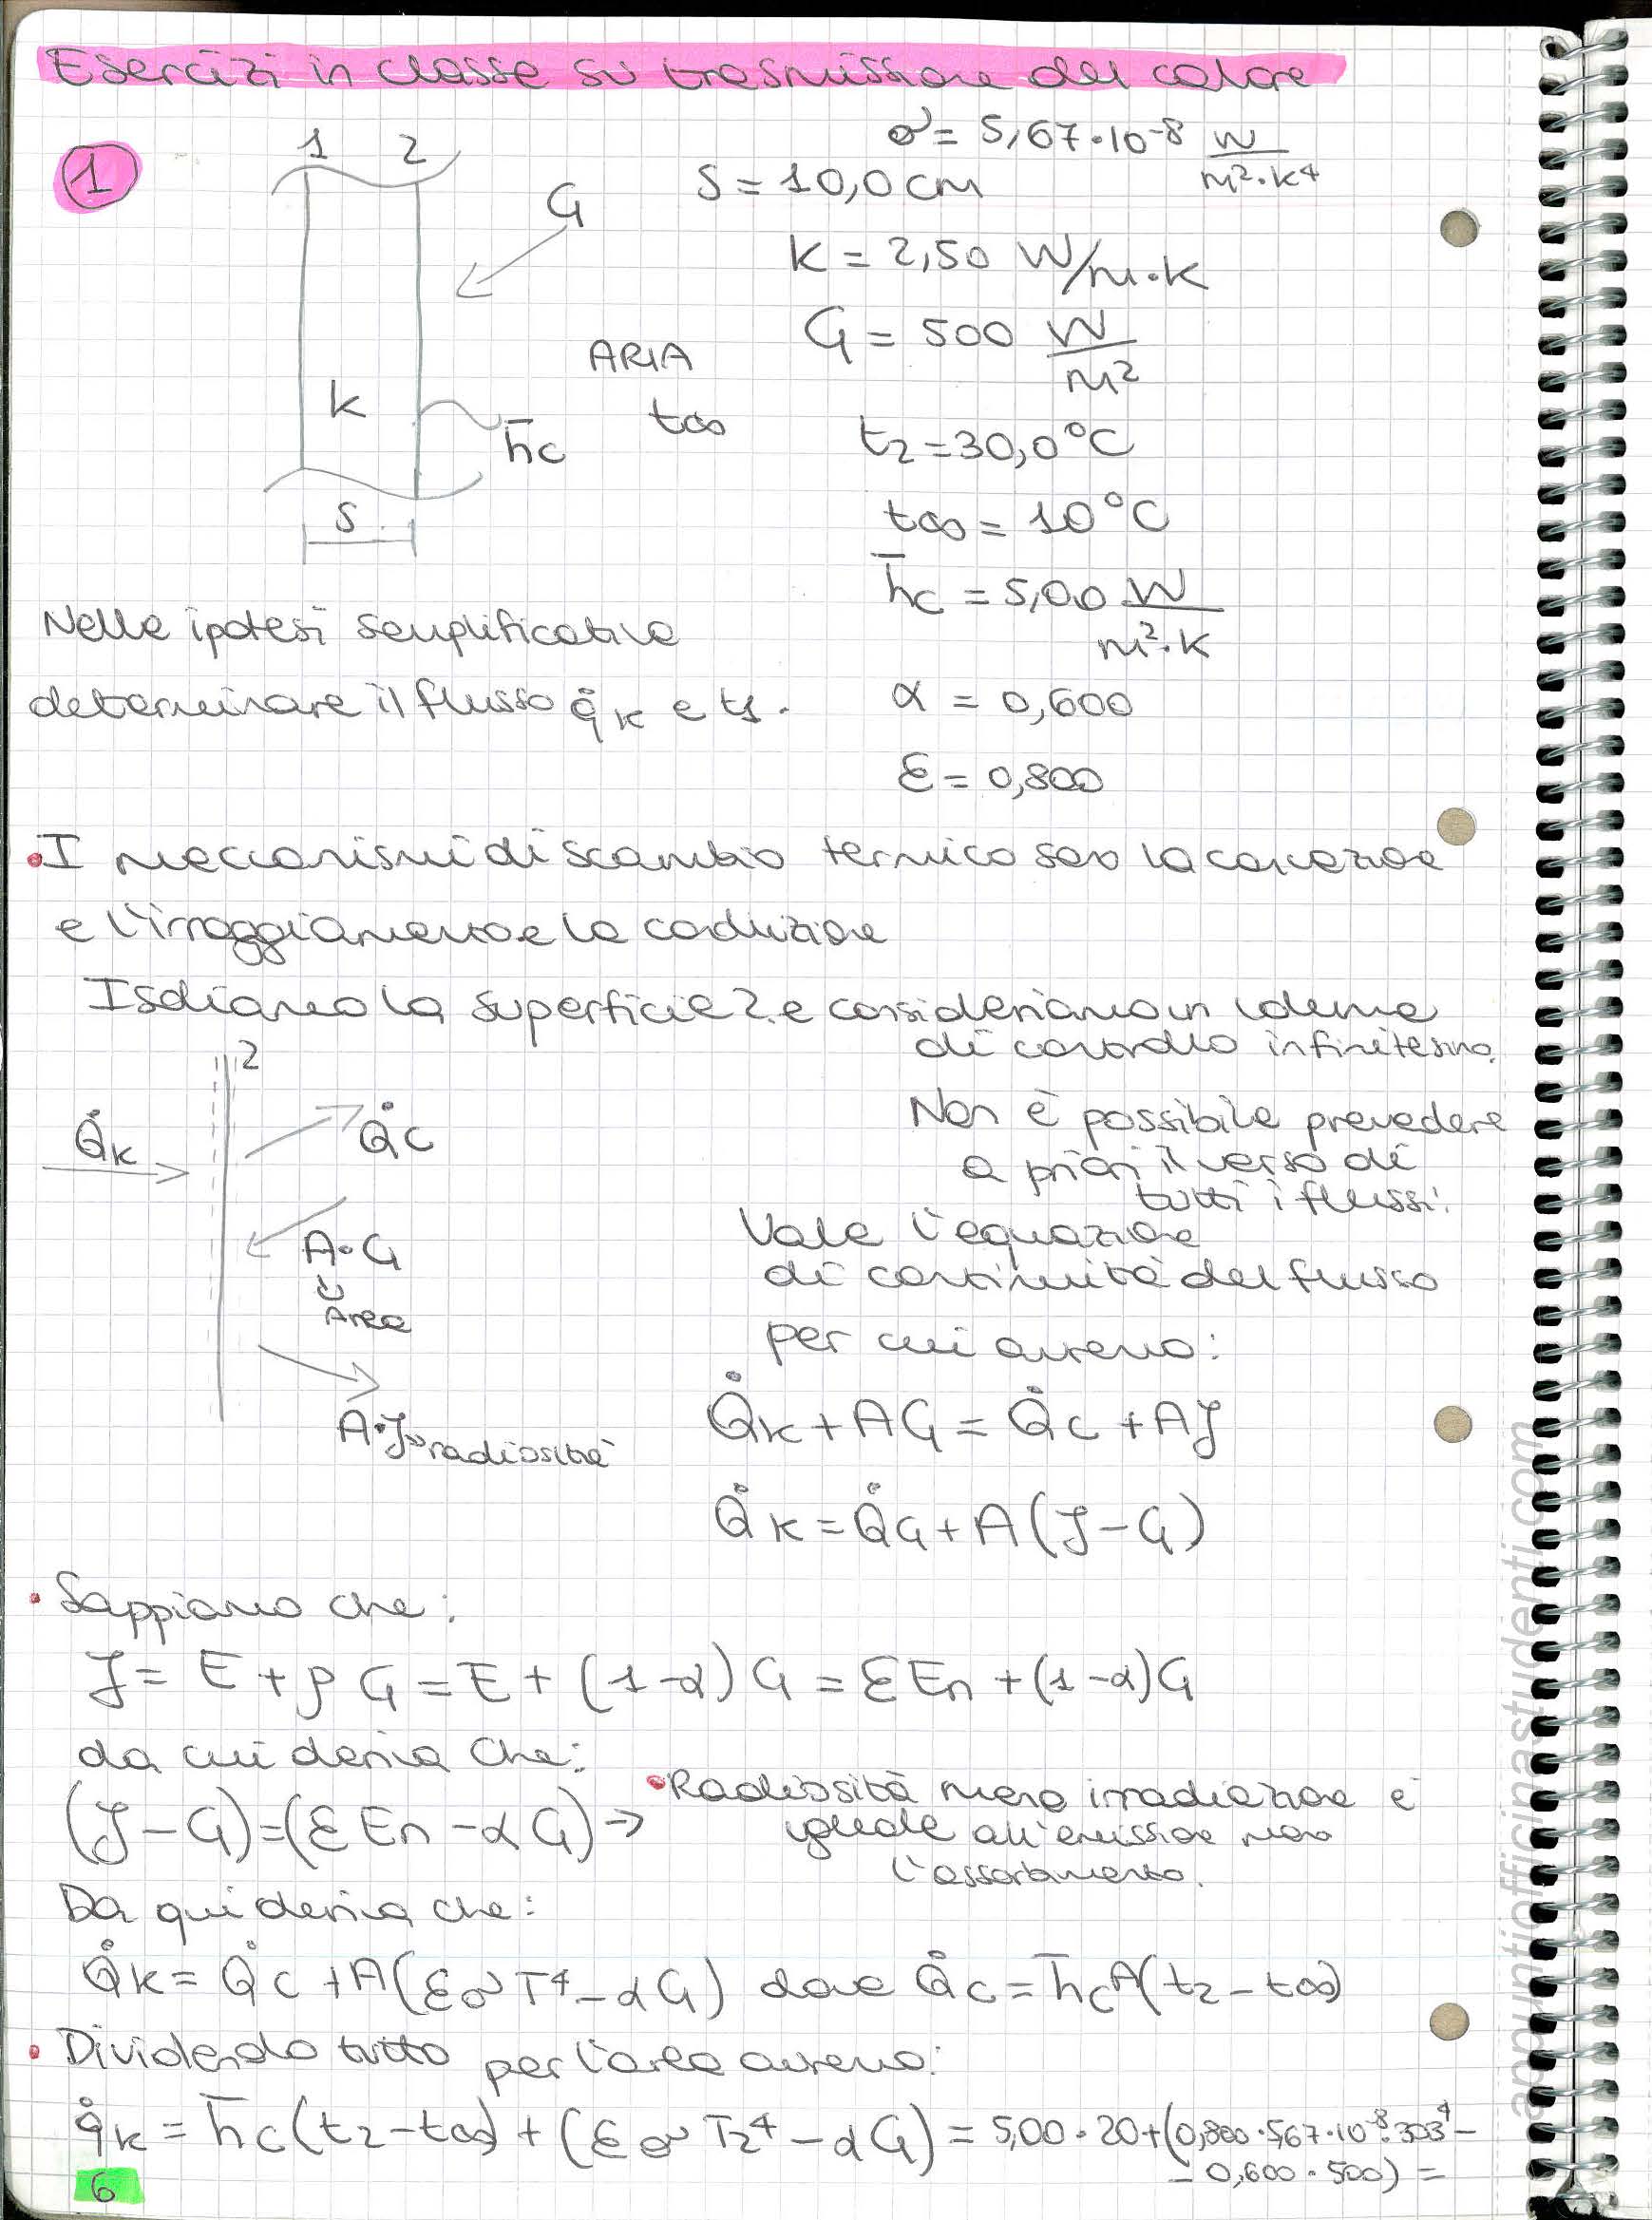 Esercizi in classe su trasmissione del calore
1
1 2
G
k
ARIA
t∞
h̅c
s
σ = 5,67·10⁻⁸ W/m²·K⁴
S = 10,0 cm
K = 2,50 W/m·K
G = 500 W/m²
t₂ = 30,0°C
t∞ = 10°C
h̅c = 5,00 W/m²·K
α = 0,600
ε = 0,800
Nelle ipotesi semplificative
determinare il flusso q̇k e t1.
• I meccanismi di scambio termico sono la convezione
e l'irraggiamento e la conduzione
Isoliamo la superficie 2 e consideriamo un volume
di controllo infinitesimo.
2
Q̇k
Q̇c
A·G
Area
A·J → radiosità
Non è possibile prevedere
a priori il verso di
tutti i flussi.
Vale l'equazione
di continuità del flusso
per cui avremo:
Q̇k + AG = Q̇c + AJ
Q̇k = Q̇G + A(J-G)
• Sappiamo che:
J = E + ρG = E + (1-α)G = εEn + (1-α)G
da cui deriva che:
(J-G) = (εEn - αG) →
• Radiosità meno irradiazione è
uguale all'emissione meno
l'assorbimento.
Da qui deriva che:
Q̇k = Q̇c + A(εσT⁴ - αG) dove Q̇c = h̅cA(t₂ - t∞)
• Dividendo tutto per l'area avremo:
q̇k = h̅c(t₂-t∞) + (εσT₂⁴ - αG) = 5,00·20 + (0,800·5,67·10⁻⁸·303⁴ -
- 0,600·500) =
6
appuntiofficinastudenti.com